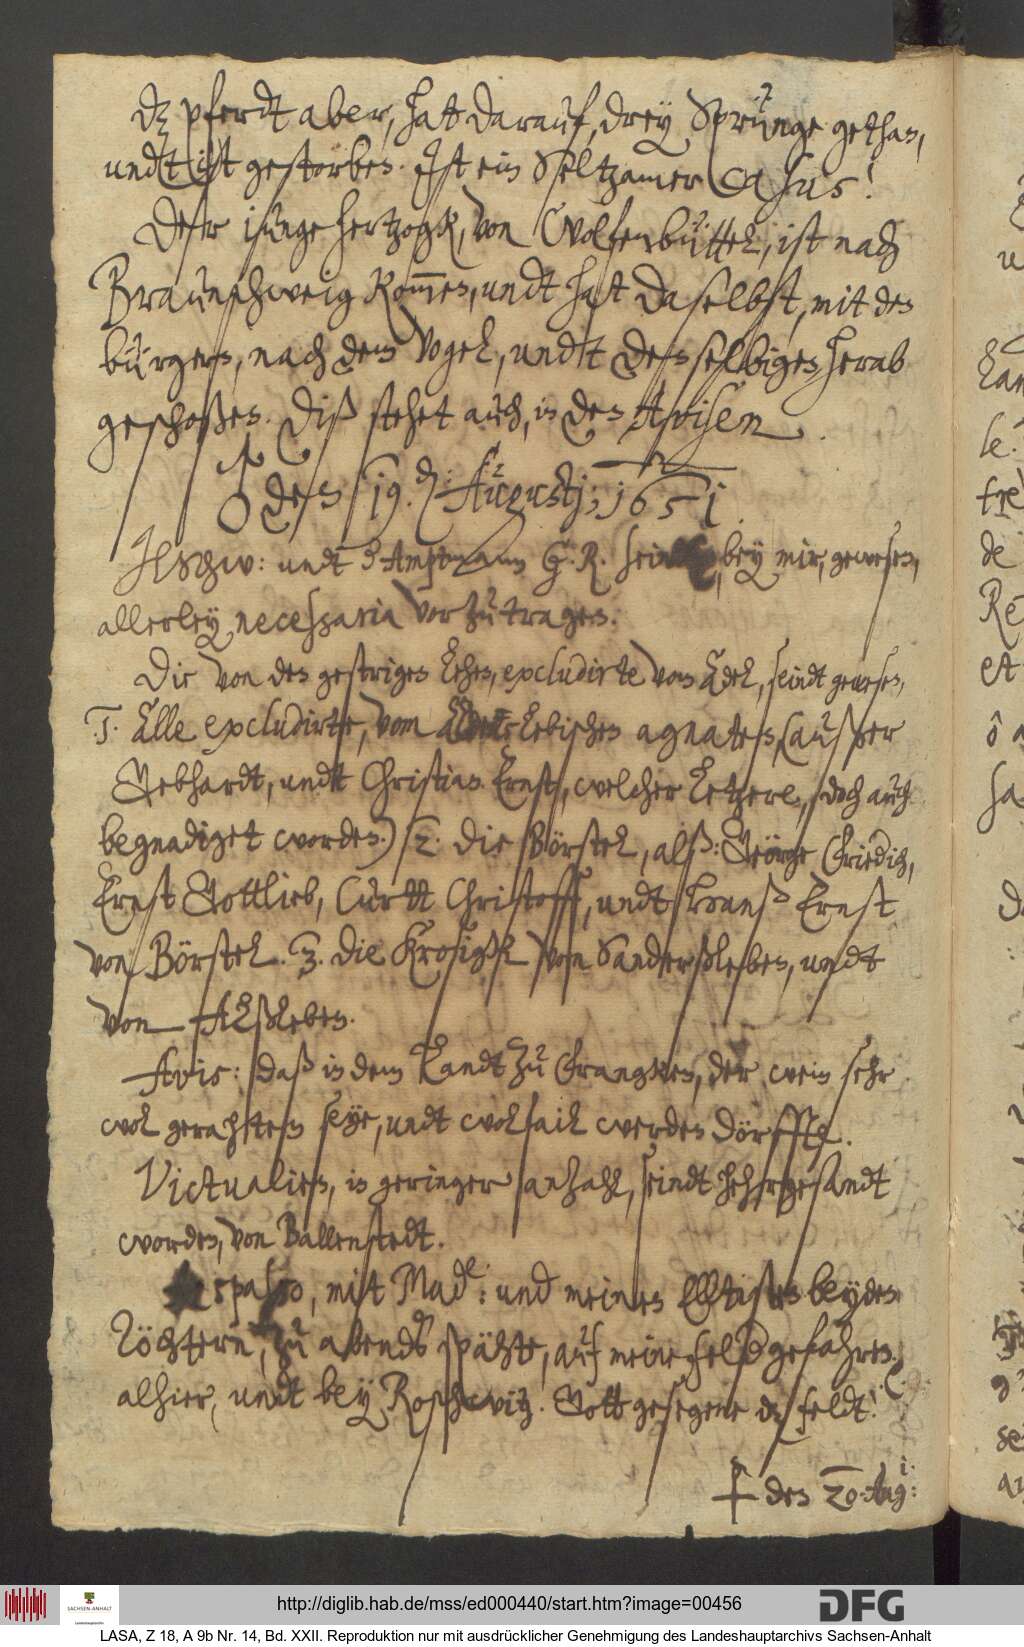 dz pferdt aber, hatt darauf, drey Sprünge gethan,
undt ist gestorben. Jst ein Seltzamer Casus!
Der iunge hertzogk, von Wolfenbüttel, ist nach
Braunschweig kommen, undt hat daselbst, mit den
bürgern, nach dem Vogel, undt denselbigen herab
geschoßen. Diß stehet auch, in den Avisen.
♂ den 19. Augustj; 1651.
Jlschw: undt d Amptmann G. R. sein bey mir, gewesen,
allerley necessaria vorzutragen.
Die von den gestrigen Lehen, excludirte vom Adel, seindt gewesen,
1. Alle excludirte, vom agnaten, (außer
Gebhardt, undt Christian Ernst, welcher Letzere, doch auch
begnadiget worden.) 2. Die Börstel, alß: George Friedich,
Ernst Gottlieb, Curtt Christoff, undt Hanß Ernst
von Börstel. 3. Die Krosigk von Sanderßleben, undt
von Alßleben.
Avis: daß in dem Landt zu Frangken, der wein sehr
wol gerahten seye, undt wolfail werden dörffte.
Victualien, in geringer anzahl, seindt hehrgesandt
worden, von Ballenstedt.
spasso, mit Made: und meinen Elltisten beyden
Töchtern, zu abends spähte, auf meine feld gefahren.
alhier, undt bey Roschwitz. Gott gesegene dz feldt! etc.
den 20. Aug:
http://diglib.hab.de/mss/ed000440/start.htm?image=00456
SACHSEN-ANHALT
DFG
LASA, Z 18, A 9b Nr. 14, Bd. XXII. Reproduktion nur mit ausdrücklicher Genehmigung des Landeshauptarchivs Sachsen-Anhalt